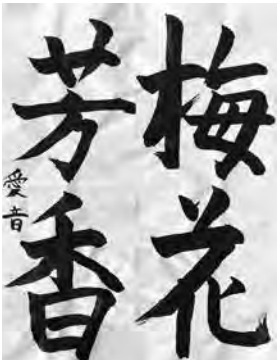 梅花
芳香
愛音